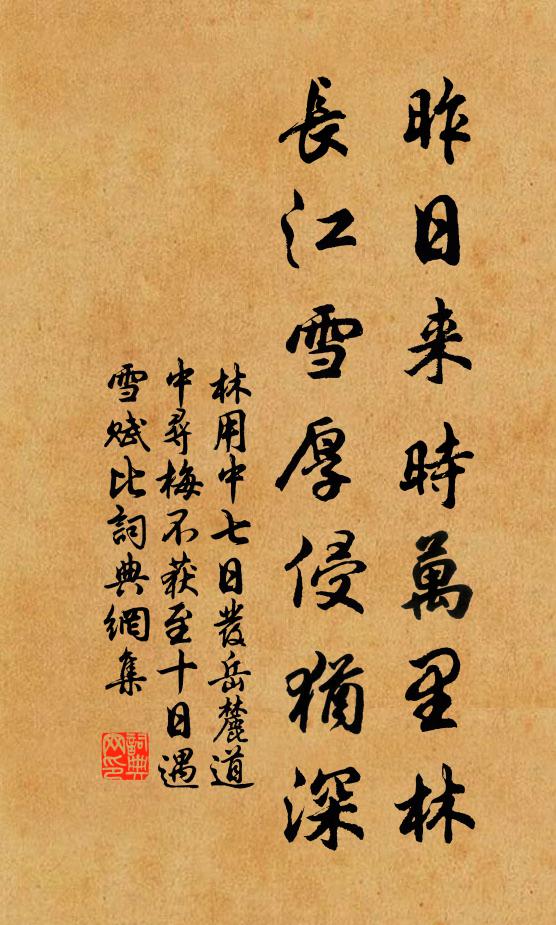 昨日来時萬里林
長江雪厚侵猶深
林用中七日發岳麓道
中尋梅不获至十日遇
雪賦此詞典網集
詞典
网印